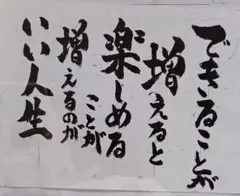 できることが
増えると
楽しめる
ことが
増えるのが
いい人生